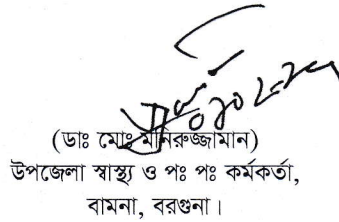 (ডাঃ মোঃ মনিরুজ্জামান)
উপজেলা স্বাস্থ্য ও পঃ পঃ কর্মকর্তা,
বামনা, বরগুনা।